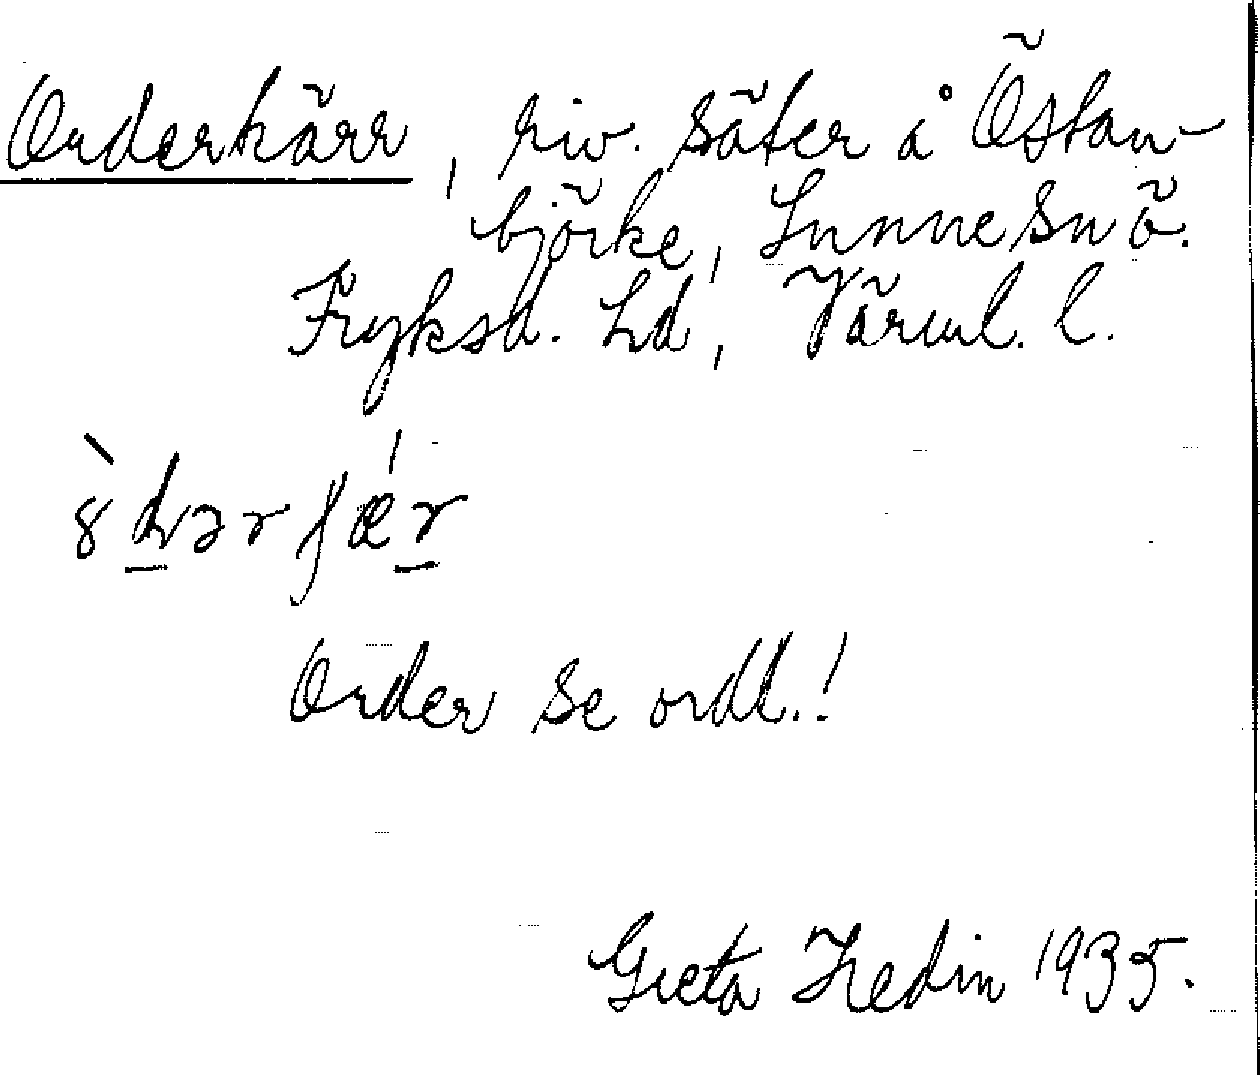 Orderkärr, riv. säter å Östan-
björke, Sunne sn ö.
Fryksd. hd, Värml. l.
Order se ordl.!
Greta Hedin 1935.